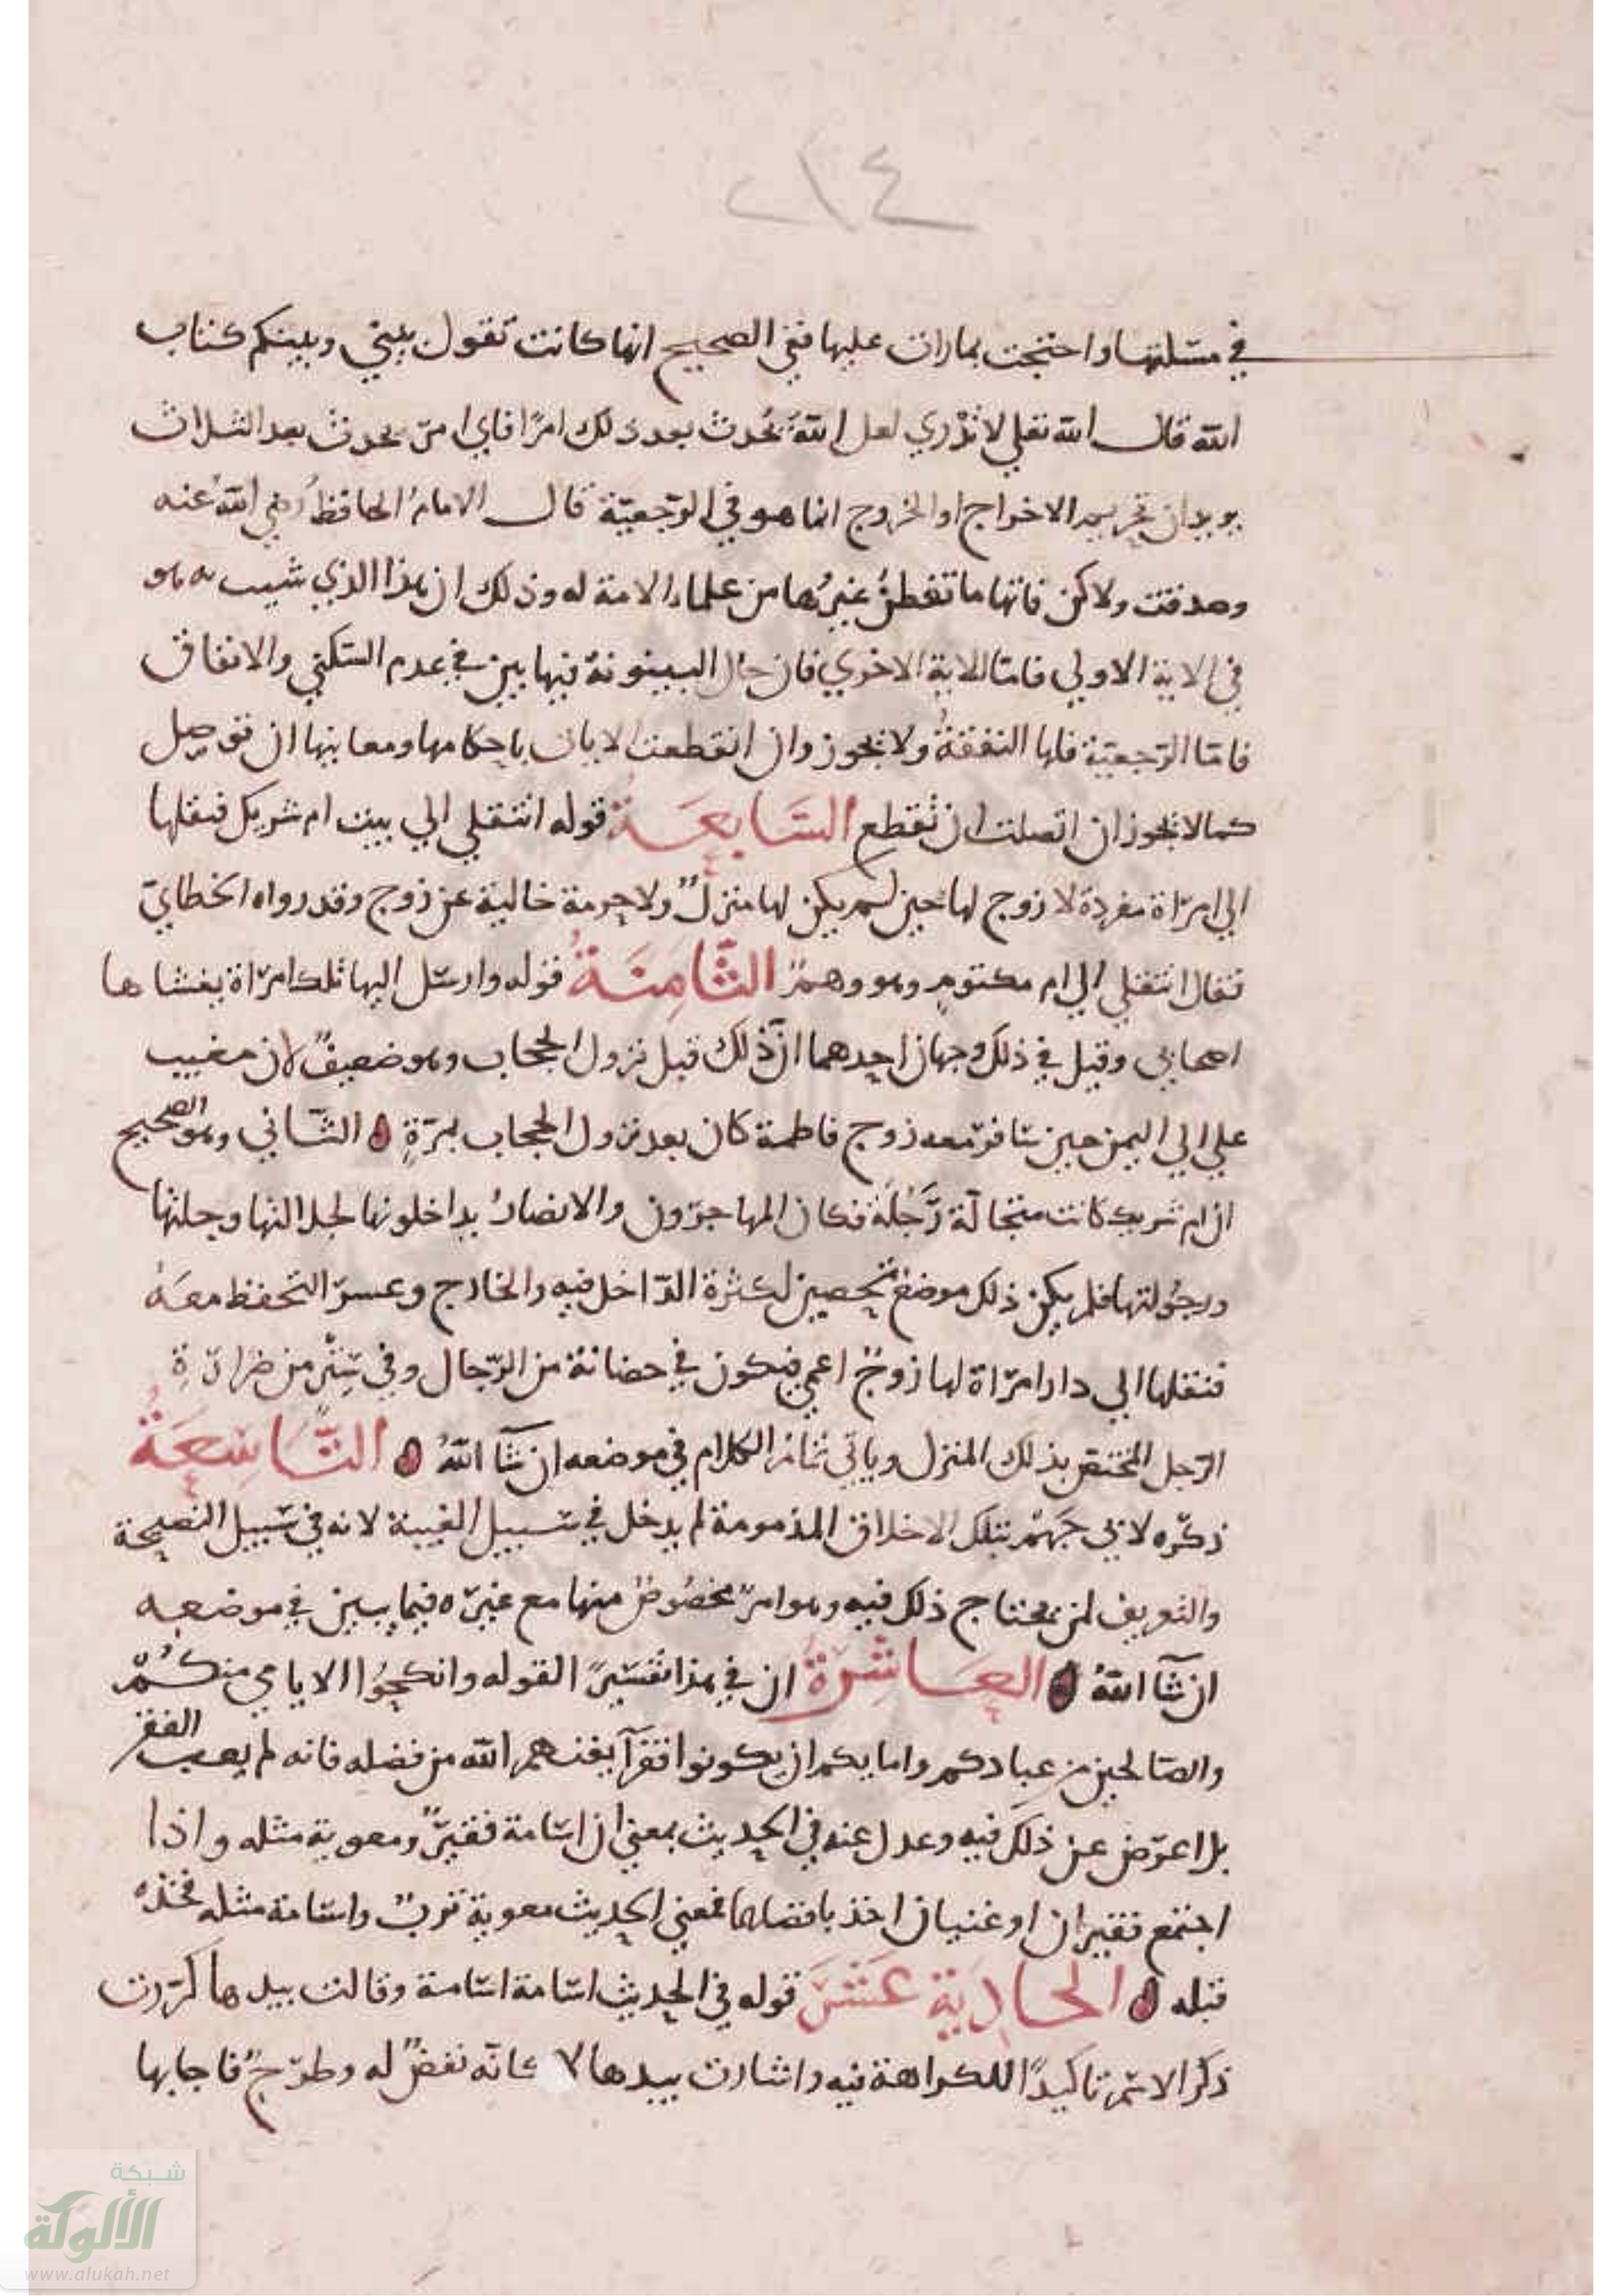 ٢١٤
في مسئلتها واحتجت بما رات عليها ففي الصحيح انها كانت تقول بيني وبينكم كتاب
الله قال الله تعلي لا تدْري لعل اللهَ يُحدث بعد ذلك امرًا فاي امر يحدث بعد الثلاث
يريد ان تحريم الاخراج او الخروج انما هو في الرّجعيّة قال الامامُ الحافظُ رضي الله عنه
وصدقت ولاكن فاتها ما تفطنُ غيرُها من علماء الامة له وذلك ان هذا الذي هو
في الاية الاولي فامّا الاية الاخري فان حال البينونة فيها بين في عدم السّكني والانفاق
فامّا الرّجعيّة فلها النفقةُ ولا يجوز وان انقطعت الايات باحكامها ومعانيها ان توصل
كما لا يجوز ان اتصلت ان تُقطع السَّابعَةُ قوله انتقلي الي بيت ام شريك فنقلها
الي امرَاة مفردة لا زوج لها حين لم يكن لها منزلٌ ولا حرمة خالية عن زوج وقد رواه الخطابيّ
فقال انتقلي الي ام مكتومٍ وهو وهمٌ الثَّامِنَةُ قوله وارسَل اليها تلك امرَاة يغشاها
اصحابي وقيل في ذلك وجهان احدهما انّ ذلك قبل نزول الحجاب وهو ضعيفٌ لان مغيب
علي الي اليمن حين سَافرَ معه زوج فاطمة كان بعد نزول الحجاب بمرّةٍ الثّاني وهو الصحيح
ان ام شريك كانت متجالّة رَجُلَة فكان المهاجرون والانصارُ يداخلونها لجلالتها
ورجُولتها فلم يكن ذلك موضع تحصين لكثرة الدّاخل فيه والخارج وعسرَ التّحفظ معَهُ
فنقلها الي دار امرَاة لها زوجٌ اعمي فتكون في حضانة من الرّجال وفي سِتْر من
الرّجل المختص بذلك المنزل وياتي تمام الكلام في موضعه ان شآ اللهُ التَّاسِعَةُ
ذكرُه لابي جَهْمٍ بتلك الاخلاق المذمومة لم يدخل في سَبيل الغيبة لانه في سَبيل النصيحة
والتعريف لمن يحتاج ذلك فيه وهو امرٌ مخصُوصٌ منها مع غيرَه فيما يبين في موضعه
ان شآ اللهُ العَاشِرَةُ ان في هذا تفسيرًا لقوله وانكحُوا الايامي منكُمْ
والصّالحين من عبادكم وامايكم ان يكونوا فقرآ يغنهم الله من فضله فانه لم يعب الفقر
بل اعرَض عن ذلك فيه وعدل عنه في الحديث بمعني ان اسَامة فقيرٌ ومعوية مثله واذا
اجتمع فقيران او غنيان اخذ بافضلهما فمعني الحديث معوية تربٌ واسَامة مثله فخذه
قبله الحادِيَةَ عَشَرَ قوله في الحديث اسَامة اسَامة وقالت بيدها كرّرت
ذكرَ الاسْم تاكيدًا للكراهة فيه واشارت بيدها لا كانّه نفضٌ له وطرحٌ فاجابها
شبكة
الألوكة
www.alukah.net